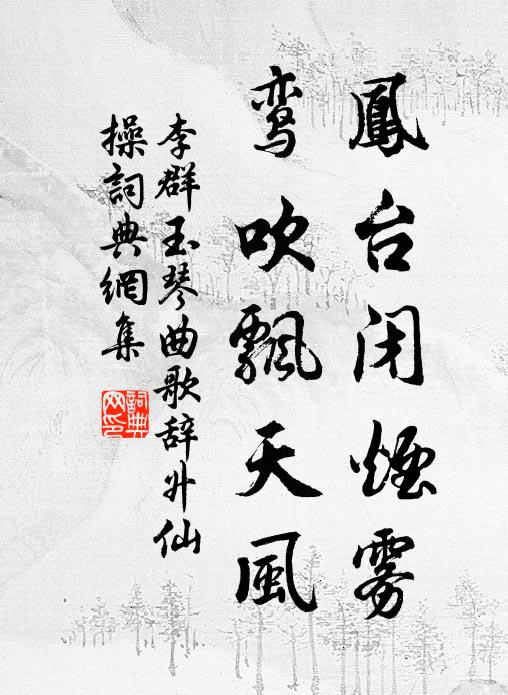 鳳台闭煙雾
鸾吹飄天風
李群玉琴曲歌辞升仙
操詞典網集
詞典
网印